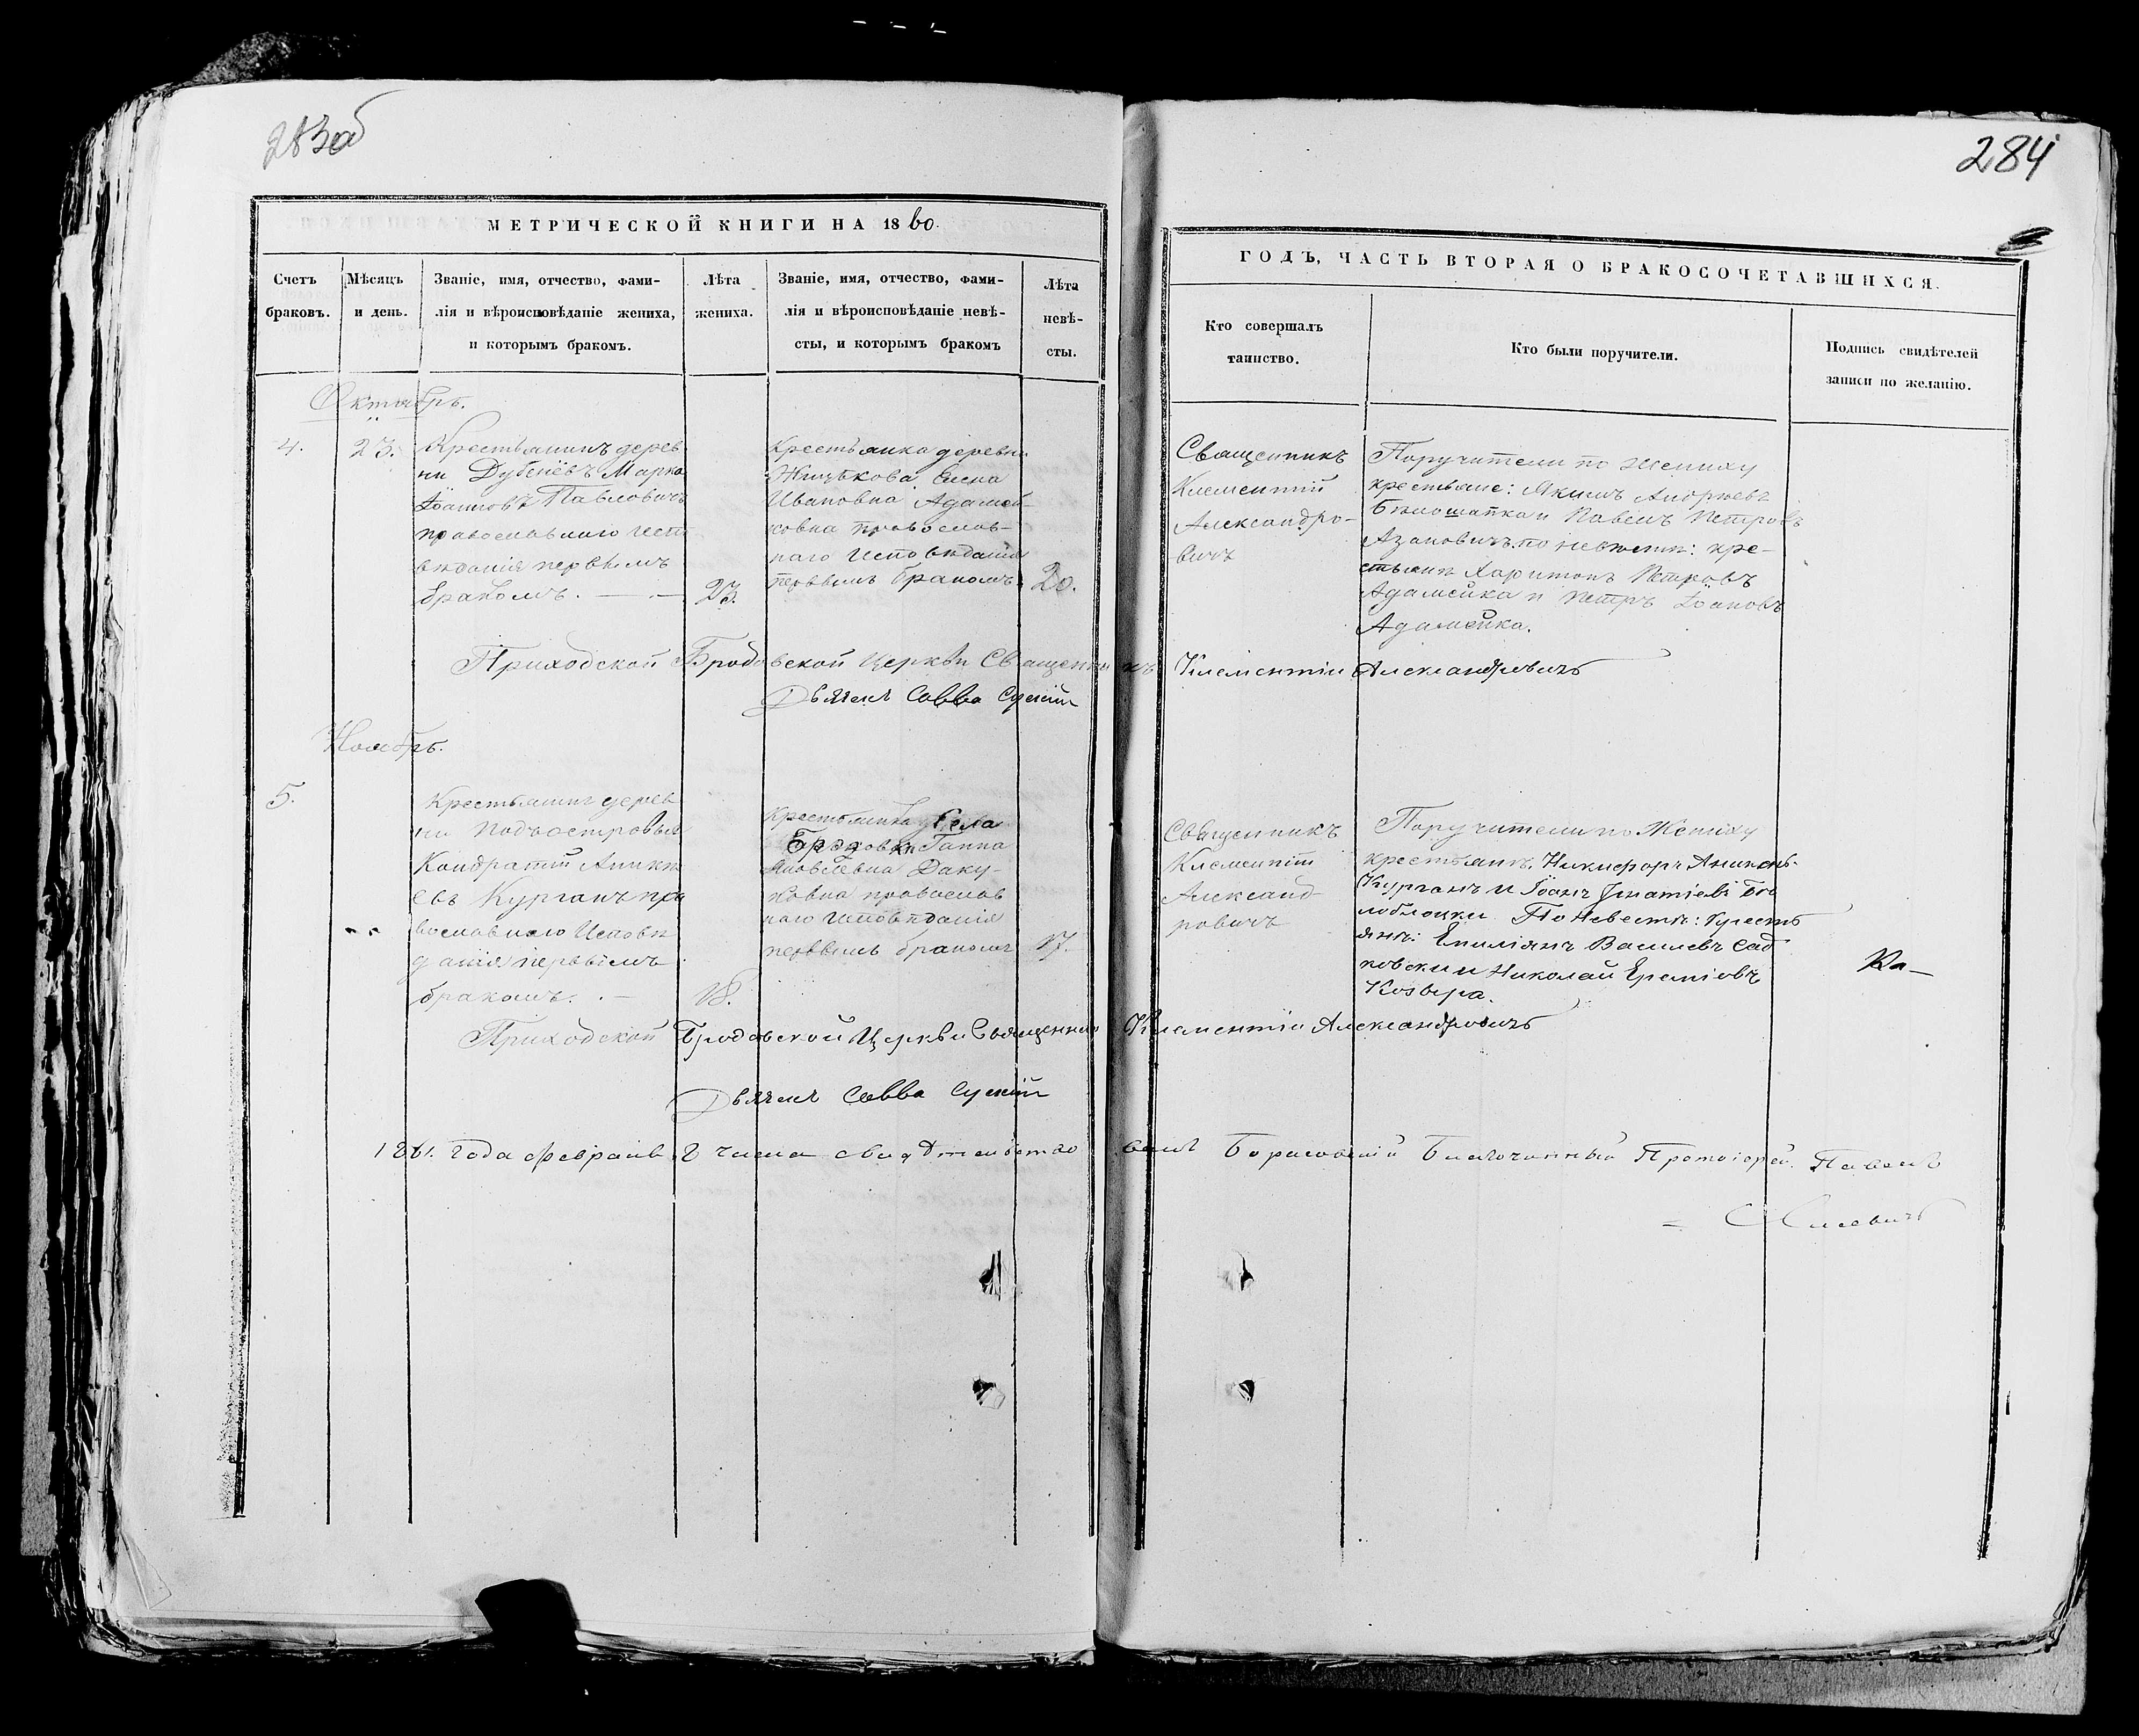 283об
284
МЕТРИЧЕСКОЙ КНИГИ НА 1860.
Счетъ браковъ.
Мѣсяцъ и день.
Званіе, имя, отчество, фами-
лія и вѣроисповѣданіе жениха,
и которымъ бракомъ.
Лѣта жениха.
Званіе, имя, отчество, фами-
лія и вѣроисповѣданіе невѣ-
сты, и которымъ бракомъ
Лѣта невѣ-
сты.
ГОДЪ, ЧАСТЬ ВТОРАЯ О БРАКОСОЧЕТАВШИХСЯ.
Кто совершалъ
таинство.
Кто были поручители.
Подпись свидѣтелей
записи по желанію.
Октябрь.
4.
23.
Крестьянинъ дерев
ни Дубенёвъ Марко
Іоанновъ Павловичъ
православнаго испо
вѣданія первымъ
бракомъ.
23.
Крестьянка деревни
Елена
Ивановна Адамей-
ковна православ-
наго исповѣданія
первымъ бракомъ
20.
Священникъ
Климентій
Александро-
вичъ
Поручители по жениху
крестьяне: Якимъ Андреевъ
Бѣлошапка и Павелъ Петровъ
Азановичъ по невѣстѣ: кре-
стьяне Харитонъ Петровъ
Адамейка и Петръ Іоановъ
Адамейка.
Приходской Бродовской Церкви Священникъ Климентій Александровичъ
Дьячекъ Савва
Ноябрь.
5.
Крестьянинъ дерев
ни Подъостровья
Кондратій Аники
евъ Курганъ пра
вославнаго исповѣ
данія первымъ
бракомъ.
18.
Крестьянка села
Бродовки Ганна
Яковлевна Даку-
ковна православ
наго исповѣданія
первымъ бракомъ
17.
Священникъ
Климентій
Александ
ровичъ
Поручители по Жениху
крестьяне: Никифоръ
Курганъ и Іоанъ Игнатіевъ Бѣ
лоблоцки По Невестѣ: Крестъ
яне: Емиліянъ Василевъ Сад
ковски и Николай Ереміовъ
Козыра.
Приходской Бродовской Церкви Священникъ Климентій Александровичъ
Дьячекъ Савва
1861. года февраля 8 числа свидѣтельство валъ Борисовскій Благочинный Протоіерей Павелъ